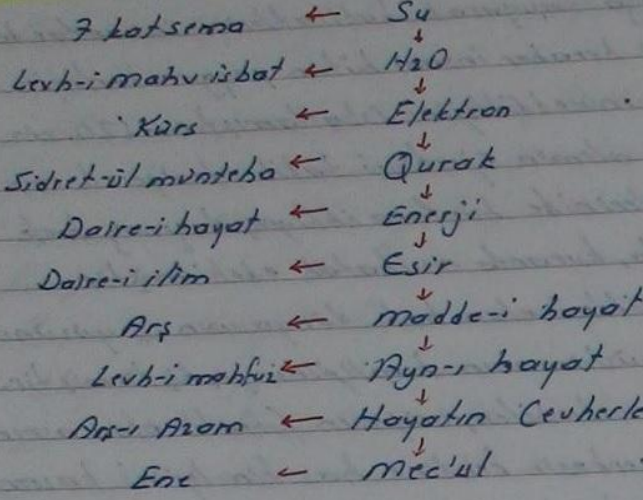 7 kat sema ← Su
↓
Levh-i mahv isbat ← H2O
↓
Kürs ← Elektron
↓
Sidret-ül münteha ← Qurak
↓
Daire-i hayat ← Enerji
↓
Daire-i ilim ← Esir
↓
Arş ← madde-i hayat
↓
Levh-i mahfuz ← Ayn-ı hayat
↓
Arş-ı Azam ← Hayatın Cevherle
↓
Ene ← mec'ul